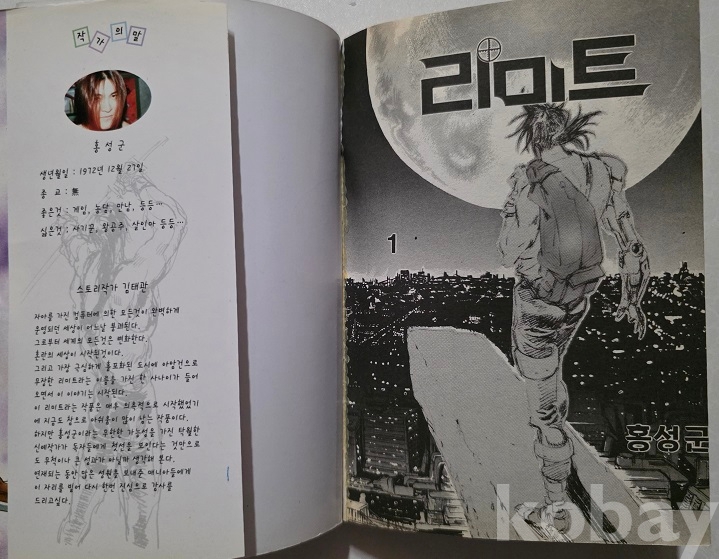 작가의말
홍성군
생년월일 : 1972년 12월 27일
종 교 : 無
좋은것 : 게임, 농담, 만남, 등등…
싫은것 : 사기꾼, 왕공주, 살인마 등등…
스토리작가 김태관
자아를 가진 컴퓨터에 의한 모든것이 완벽하게
운영되던 세상이 어느날 붕괴된다.
그로부터 세계의 모든것은 변화한다.
혼란의 세상이 시작된것이다.
그리고 가장 극심하게 흉포화된 도시에 아암건으로
무장한 리미트라는 이름을 가진 한 사나이가 들어
오면서 이 이야기는 시작된다.
이 리미트라는 작품은 매우 의욕적으로 시작했었기
에 지금도 참으로 아쉬움이 많이 남는 작품이다.
하지만 홍성군이라는 무한한 가능성을 가진 탁월한
신예작가가 독자들에게 첫선을 보인다는 것만으로
도 무척이나 큰 성과가 아닐까 생각해 본다.
연재되는 동안 많은 성원을 보내준 매니아들에게
이 자리를 빌어 다시 한번 진심으로 감사를
드리고싶다.
리미트
1
홍성군
kobay